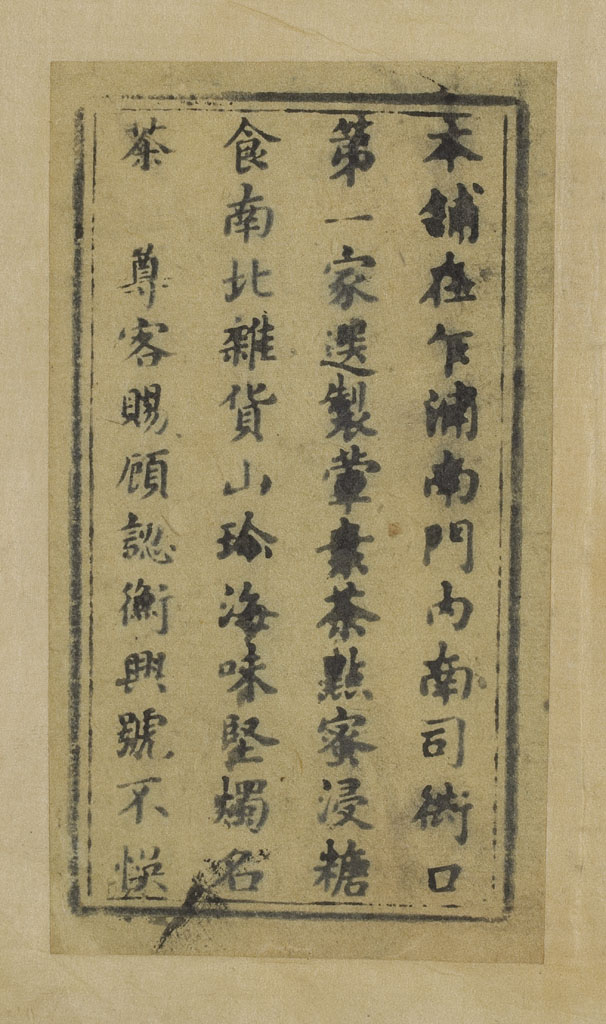 本舖在乍浦南門內南司衖口
第一家選製葷素茶點蜜浸糖
食南北雜貨山珍海味堅燭名
茶　尊客賜顧認衡興號不悞